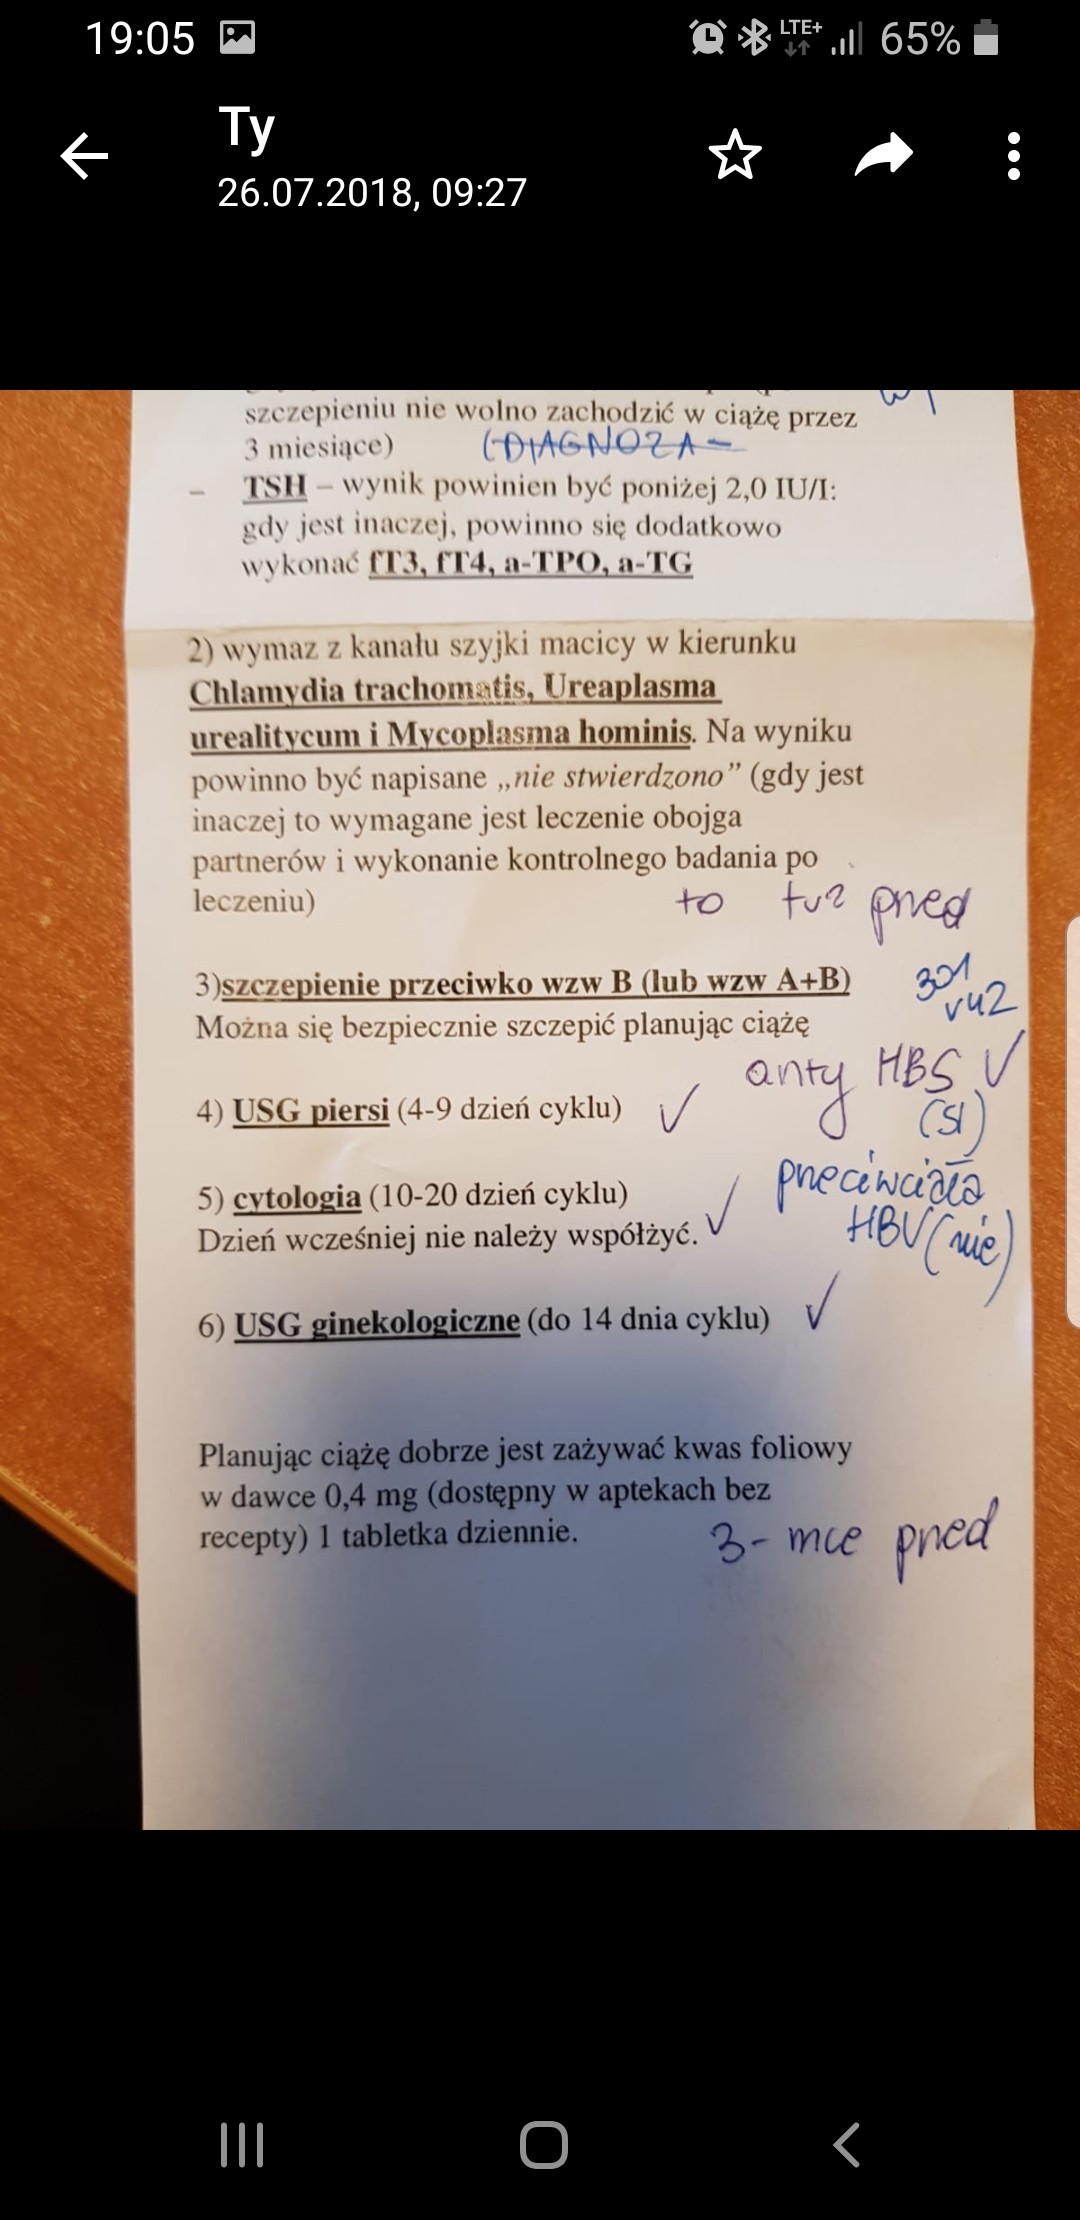 19:05
LTE+
65%
Ty
26.07.2018, 09:27
szczepieniu nie wolno zachodzić w ciążę przez
3 miesiące) (DIAGNOZA -
– TSH – wynik powinien być poniżej 2,0 IU/I:
gdy jest inaczej, powinno się dodatkowo
wykonać fT3, fT4, a-TPO, a-TG
2) wymaz z kanału szyjki macicy w kierunku
Chlamydia trachomatis, Ureaplasma
urealitycum i Mycoplasma hominis. Na wyniku
powinno być napisane „nie stwierdzono” (gdy jest
inaczej to wymagane jest leczenie obojga
partnerów i wykonanie kontrolnego badania po
leczeniu)
to tuż przed
3)szczepienie przeciwko wzw B (lub wzw A+B)
Można się bezpiecznie szczepić planując ciążę
anty HBS
4) USG piersi (4-9 dzień cyklu)
przeciwciała
5) cytologia (10-20 dzień cyklu)
HBV (nie)
Dzień wcześniej nie należy współżyć.
6) USG ginekologiczne (do 14 dnia cyklu)
Planując ciążę dobrze jest zażywać kwas foliowy
w dawce 0,4 mg (dostępny w aptekach bez
recepty) 1 tabletka dziennie.
3- mce przed